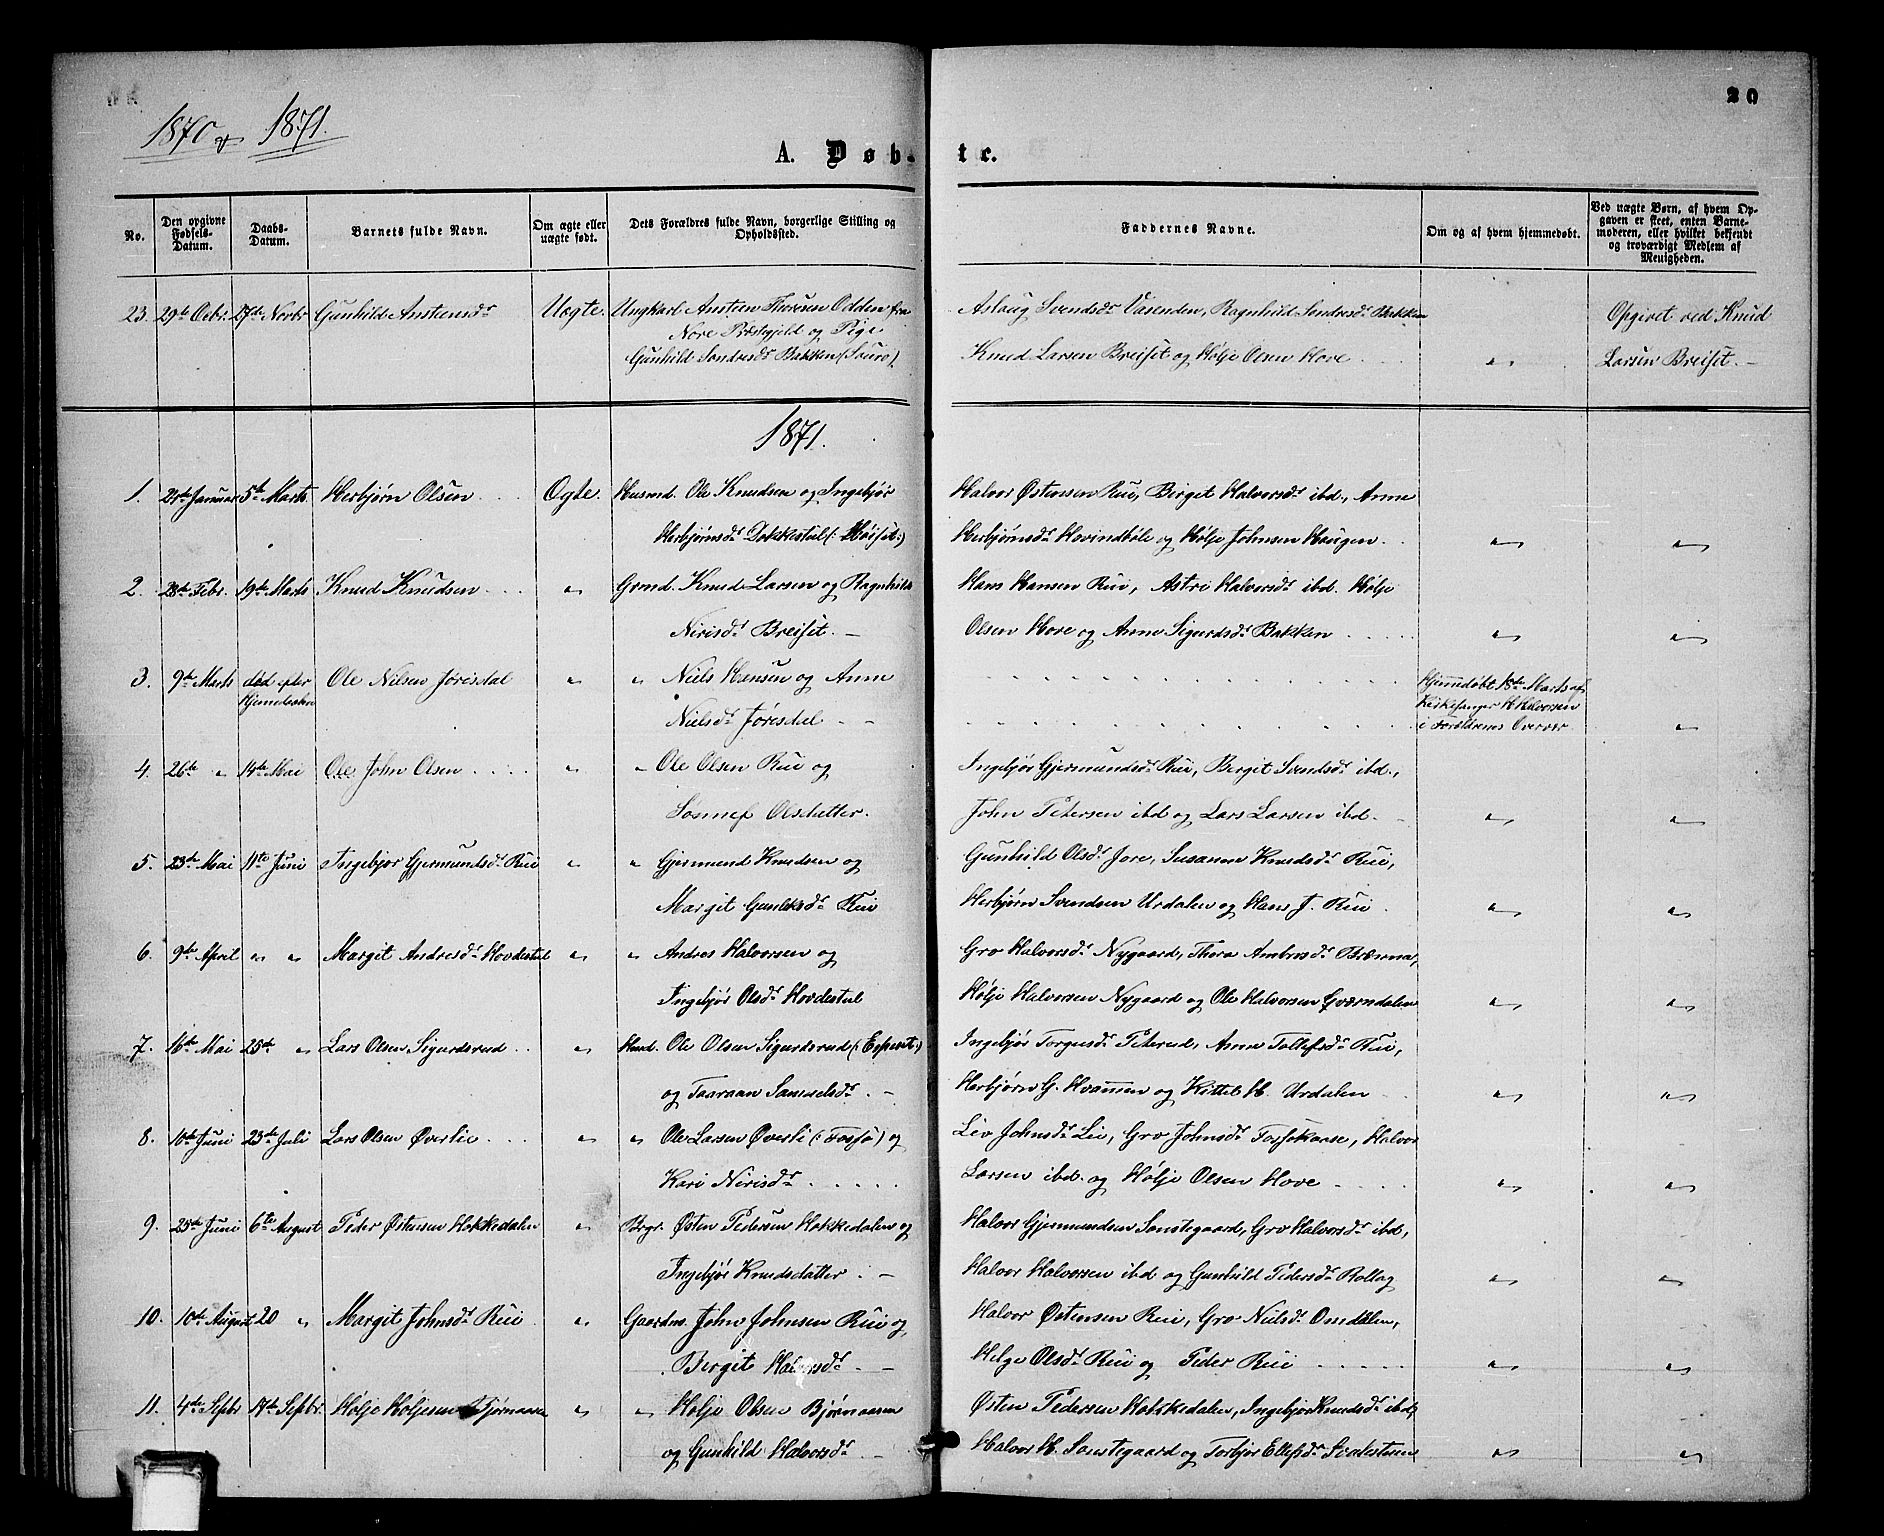 1870 & 1871.
20
A. Døb-
te.
No.
Den opgivne Fødsels-Datum.
Daabs-Datum.
Barnets fulde Navn.
Om ægte eller uægte født.
Dets Forældres fulde Navn, borgerlige Stilling og Opholdssted.
Faddernes Navne.
Om og af hvem hjemmedøbt.
Ved uægte Børn, af hvem Opgaven er skeet, enten Barnemoderen, eller hvilket bekjendt og troværdigt Medlem af Menigheden.
23. 29de Octbr. 27de Novbr Gunhild Anstensdr Uægte. Ungkarl Ansten Thoresen Odden fra Aslaug Svendsdr Vasenden, Ragnhild Sondresdr Bakken Opgivet ved Knud
Nore Præstegjeld og Pige
Gunhild Sondresdr Bakken (: Søure) Knud Larsen Breiset og Holje Osen Hove " Larsen Breiset. -
1871.
1. Januar 5te Marts Herbjørn Olsen Ægte. Husmd. Ole Knudsen og Ingebjør Halvor Østensen Rui, Birgit Halvorsdr ibd., Anne
Herbjørnsdr Dokkestul (: Høiset:) Herbjørnsdr Hovindbøle og Holje Johnsen Haugen. " "
2. 28de Febr. 19de Marts Knud Knudsen " Grmd. Knud Larsen og Ragnhild Hans Hansen Rui, Astri Halvorsdr ibd. Holje
Nirisdr Breiset. - Olsen Hove og Anne Sigurdsdr Bakken " "
3. 9de Marts død efter Hjemmedaaben Ole Nilsen Joresdal " " Niels Hansen og Anne Hjemmedøbt 18de Marts af
Kirkesanger H Halvorsen
Nielsdr Joresdal - i Forældrenes Overvær "
4. 26de " 14de Mai Ole John Olsen " " Ole Olsen Rui og Ingebjør Gjermundsdr Rui, Birgit Svendsdr ibd.,
Sønnef Olsdatter. John Petersen ibd og Lars Larsen ibd. - " "
5. 23de Mai 11te Juni Ingebjør Gjermundsdr Rui " " Gjermund Knudsen og Gunhild Olsdr Jore, Susanne Knudsdr Rui,
Margit Gunleksdr Rui Herbjørn Svendsen Urdalen og Hans J. Rui " "
6. 9de April " " Margit Andresdr Hovdestul " " Andres Halvorsen og Gro Halvorsdr Nygaard, Thora Ambrosdr Bræmna,
Ingebjør Olsdr Hovdestul Holje Halvorsen Nygaard og Ole Halvorsen Qværndalen " "
7. 16de Mai 25de " Lars Olsen Sigurdsrud " Husd. Ole Olsen Sigurdsrud (: Esperset:) Ingebjør Torgusdr Peterud, Anne Tollefsdr Rui,
og Taaraan Samuelsdr - Herbjørn G. Hvammen og Kittel H. Urdalen " "
8. 10de Juni 23de Juli Lars Olsen Øverlie " " Ole Larsen Øverli (: Fosso) og Liv Johnsdr Lie, Gro Johnsdr Fossøkaase, Halvor
Kari Nirisdr Larsen ibd. og Holje Olsen Hove " "
9. 25de Juni 6te August Peder Østensen Hokkedalen " Brgr. Østen Pedersen Hokkedalen og Halvor Gjermundsen Sønstegaard, Gro Halvorsdr ibd,
Ingebjør Knudsdatter - Halvor Halvorsen ibd og Gunhild Pedersdr Rollag " "
10. 10de August 20 " Margit Johnsdr Rui " Gaardm. John Johnsen Rui og Halvor Østensen Rui, Gro Nielsdr Omdalen,
Birgit Halvorsdr - Helge Olsdr Rui og Peder Rui " "
11. 4de Sepbr 17de Sepbr. Holje Holjesen Bjørnaasen " " Holje Olsen Bjørnaasen Østen Pedersen Hokkedalen, Ingebjør Knudsdr ibd,
og Gunhild Halvorsdr - Halvor H. Sønstegaard og Torbjør Ellefsdr " "